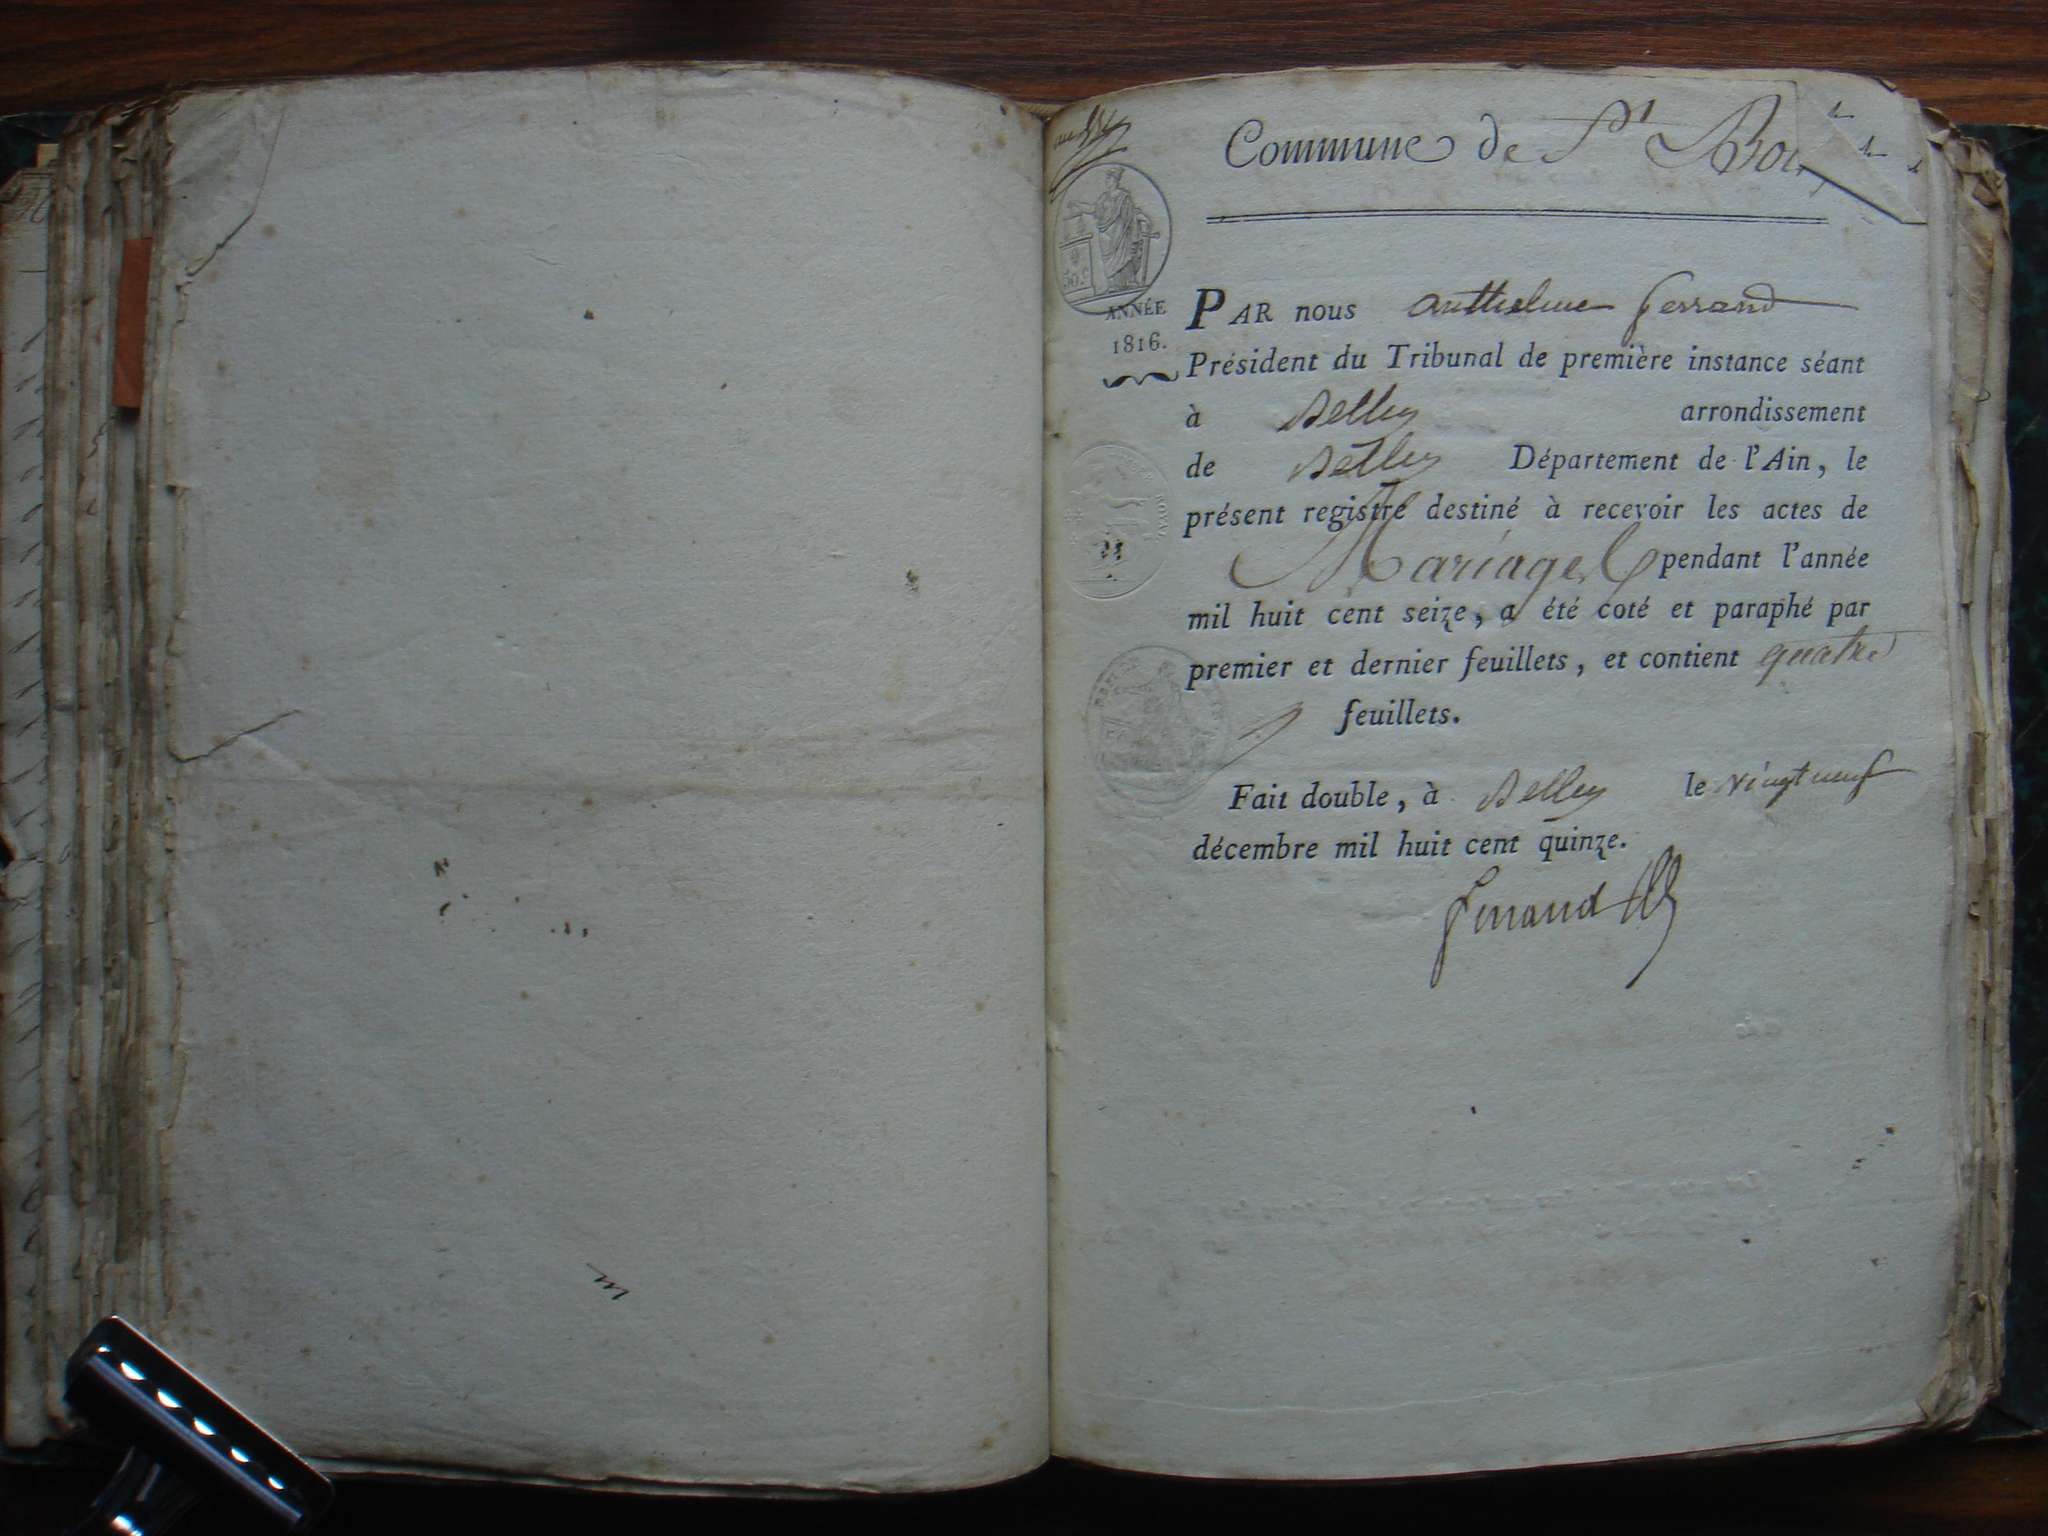 Commune de St Bo
50.c
ANNÉE
1816.
PAR nous Anthelme ferrand
Président du Tribunal de première instance séant
à Belley arrondissement
de Belley Département de l'Ain, le
présent registre destiné à recevoir les actes de
Mariages pendant l'année
mil huit cent seize, a été coté et paraphé par
premier et dernier feuillets, et contient quatre
feuillets.
Fait double, à Belley le vingt neuf
décembre mil huit cent quinze.
ferrand